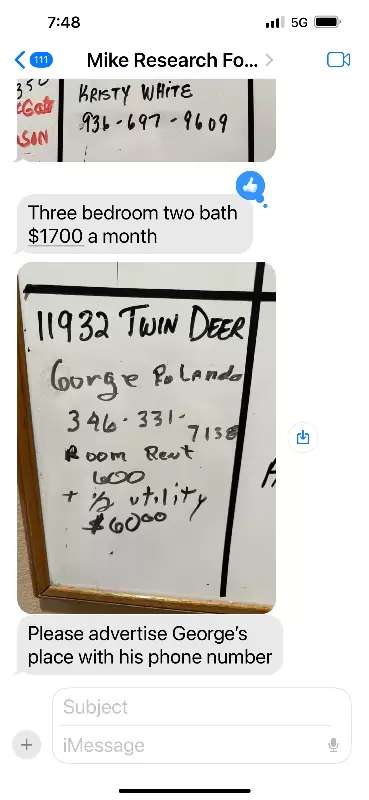 7:48
5G
111
Mike Research Fo...
350
KRISTY WHITE
936-697-9609
SON
Three bedroom two bath
$1700 a month
11932 TWIN DEER
George Rolando
346-331-7138
Room Rent
600
+ ½ utility
$60⁰⁰
Please advertise George's
place with his phone number
Subject
iMessage